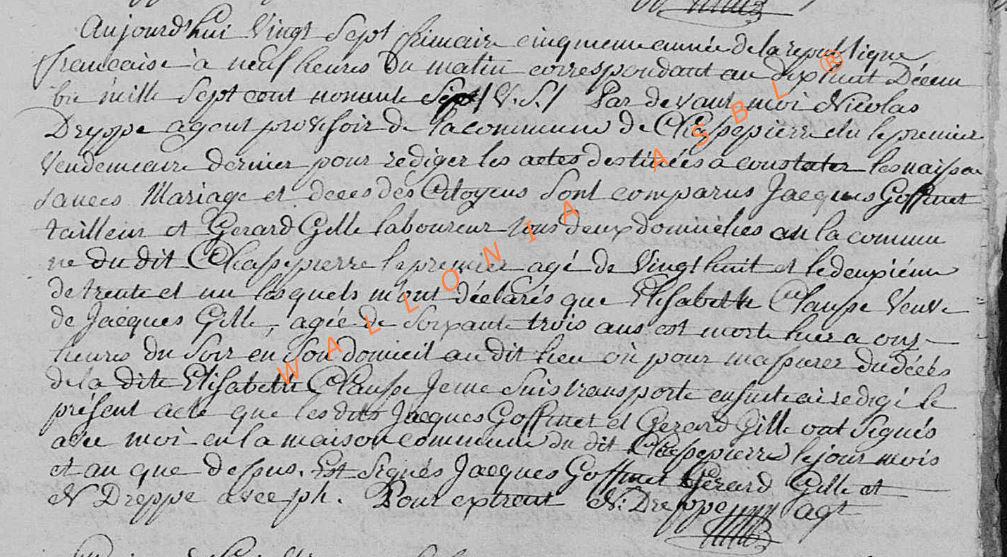 Aujourd'hui Vingt Sept frimaire cinquieme année de la republique
francaise à neuf heures du matin correspondant au dix huit Décem
bre mille Sept cent nonante Sept V. S. / Par devant moi Nicolas
Dreppe agent provisoir de la commune de Chassepierre elu le premier
Vendemiaire dernier pour rediger les actes destinées a constater les naissa
sances Mariage et deces des Citoyens Sont comparus Jacques Goffinet
tailleur et Gerard Gille laboureur tous deux domiciliés en la commu
ne du dit Chassepierre le premier agé de Vingt huit et le deuxiéme
de trente et un lesquels m'ont déclarés que Elisabeth Clausse Veuve
de Jacques Gille, agée de Soixante trois ans est morte hier a onze
heures du Soir en Son domicil au dit lieu où pour m'assurer du décés
de la dite Elisabeth Clausse Je me suis transporté ensuite ai redigé le
présent acte que les dits Jacques Goffinet et Gerard Gille ont signés
avec moi en la maison commune du dit Chassepierre le jour mois
et an que dessus. Est Signés Jacques Goffinet Gerard Gille et
N Dreppe avec ph. Pour extrait N: Dreppe agt
WALLONIA ASBL ®